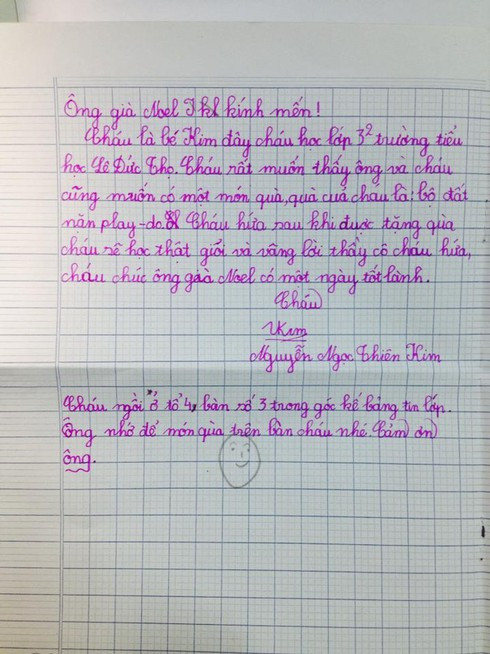 Ông già Noel kính mến!
Cháu là bé Kim đây cháu học lớp 3² trường tiểu
học Lê Đức Thọ. Cháu rất muốn thấy ông và cháu
cũng muốn có một món quà, quà của cháu là: bô đất
năn play-do. Cháu hứa sau khi được tặng qùa
cháu sẽ học thật giỏi và vâng lời thầy cô cháu hứa,
cháu chúc ông già Noel có một ngày tốt lành.
Cháu
Kim
Nguyễn Ngọc Thiên Kim
Cháu ngồi ở tổ 4, bàn số 3 trong góc kế bảng tin lớp.
Ông nhớ để món qùa trên bàn cháu nhé. Cảm ơn
ông.